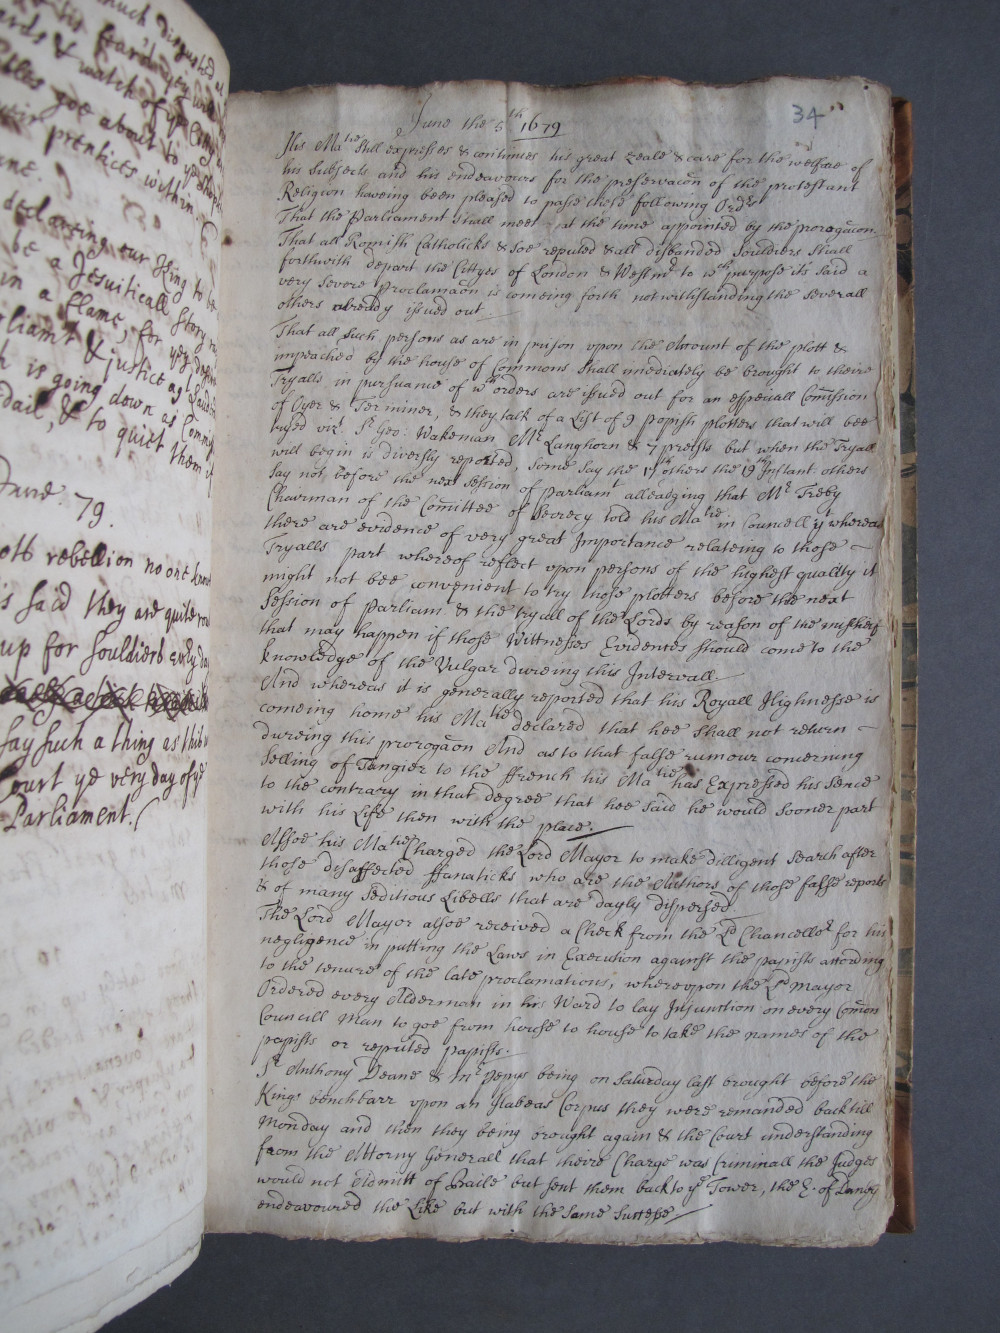 much disgusted at
ards & watch of ye Citty
goe about to ye shops
prentices within.
declareing our King to be
be a Jesuiticall story
in a flame, for
liamt & justice agt
h is going down as
& to quiet them
June
79.
rebellion no one
is said they are quite
up for souldiers every day
say such a thing as this
Court ye very day of ye
Parliament.
34
June the 5th 1679
His Matie still expresses & continues his great zeale & care for the welfare of
his Subjects and his endeavours for the preservacon of the protestant
Religion haveing been pleased to passe these following Orders
That the Parliament shall meet at the time appointed by the prorogacon
That all Romish Catholicks & soe reputed & all disbanded Souldiers shall
forthwith depart the Cittyes of London & Westmr to wch purpose its said a
very severe Proclamacon is comeing forth notwithstanding the severall
others already issued out.
That all such persons as are in prison upon the Account of the plott &
impeached by the house of Commons shall imediately be brought to theire
Tryalls in pursuance of wch orders are issued out for an espetiall Comission
of Oyer & Terminer, & they talk of a List of 9 popish plotters that will bee
tryed vizt. Sr Geo: Wakeman Mr Langhorn & 7 preists but when the Tryall
will begin is diversly reported, some say the others the 19th Instant others
say not before the next Session of parliamt alleadging that Mr Treby
Chairman of the Comittee of Secrecy told his Matie in Councell yt whereas
there are evidence of very great Importance relateing to those
Tryalls part whereof reflect upon persons of the highest quality it
might not bee convenient to try those plotters before the next
Session of parliam. & the tryall of the Lords by reason of the mischief
that may happen if those Wittnesses Evidences should come to the
knowledge of the Vulgar dureing this Intervall.
And whereas it is generally reported that his Royall Highnesse is
comeing home his Matie declared that hee shall not return
dureing this prorogacon And as to that false rumour concerning
selling of Tangier to the ffrench his Matie has Expressed his sence
to the contrary in that degree that hee said he would sooner part
with his Life then with the place.
Alsoe his Matie Charged the Lord Mayor to make dilligent search after
those disaffected ffanaticks who are the Authors of those false reports
& of many seditious Libells that are dayly dispersed
The Lord Mayor alsoe received a Check from the Ld Chancellor for his
negligence in putting the Laws in Execution against the papists according
to the tenure of the late proclamations, whereupon the Ld Mayor
Ordered every Alderman in his Ward to lay Injunction on every Comon
Councill Man to goe from house to house to take the names of the
papists or reputed papists.
Sr Anthony Deane & Mr Pepys being on Saturday last brought before the
Kings benchbarr upon an Habeas Corpus they were remanded back till
Monday and then they being brought again & the Court understanding
from the Attorny Generall that theire Charge was Criminall the Judges
would not Admitt of Baile but sent them back to ye Tower, the E. of Danby
endeavoured the Like but with the same Successe